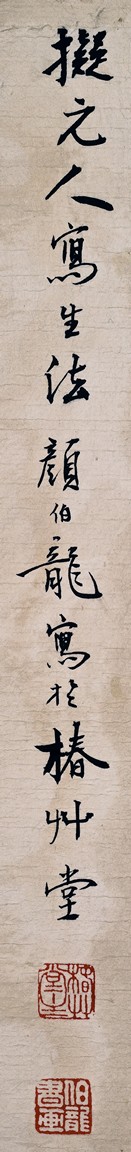 擬元人寫生法顏伯龍寫於椿艸堂
伯龍書畫